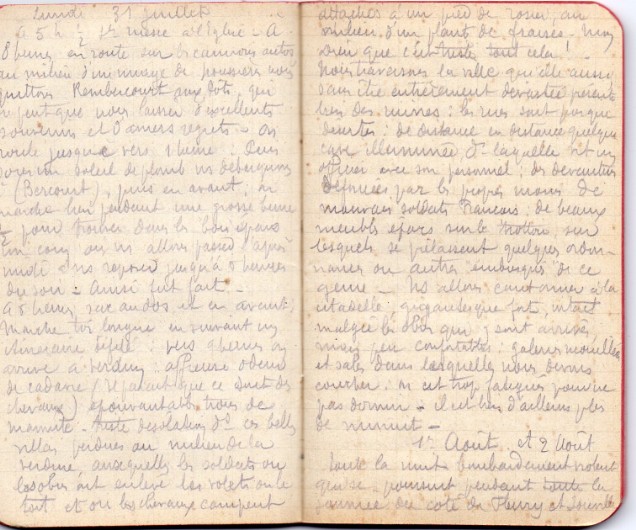 Lundi 31 juillet
à 5 h ½ 1re messe à l'Eglise - A
8 heures en route sur les camions autos
au milieu d'un nuage de poussière nous
quittons Rembercourt aux Pots, qui
ne peut que nous laisser d'excellents
souvenirs et d'amers regrets - on
roule jusque vers 1 heure : Sous
un soleil de plomb ns débarquons
puis en avant, la
marche pendant une grosse heure
½ pour trouver dans les bois épars
un coin où ns allons passer l'après
midi & ns reposer jusqu'à 5 heures
du soir - Ainsi fut fait -
A 5 heures, sac au dos et en avant,
marche très longue en suivant un
itinéraire : vers 9 heures on
arrive à Verdun : affreuse odeur
de cadavre (il paraît que ce sont des
chevaux) épouvantables trous de
marmite - triste désolation de ces belles
villas perdues au milieu de la
verdure, auxquelles les soldats ou
les obus ont enlevé les volets ou le
toit et où les chevaux campent
attachés à un pied de rosier, au
milieu d'un plants de fraises - mon
Dieu que c'est triste tout cela !
Nous traversons la ville qu'elle aussi
sans être entièrement dévastée présente
bien des ruines : les rues sont presque
désertes : de distance en distance quelque
cave illuminée ds laquelle vit un
officier avec son personnel ; des devantures
défoncées par les propres mains de
mauvais soldats français, de beaux
meubles épars sur le trottoir sur
lesquels se prélassent quelques ordon-
nances ou autres embusqués de ce
genre - Ns allons cantonner à la
citadelle, gigantesque fort, intact
malgré les obus qui y sont arrivés
mais peu confortable : galeries mouillées
et sales dans lesquelles nous devons
coucher : on est trop fatigués pour ne
pas dormir - il est bien d'ailleurs près
de minuit -
1er Août et 2 Août
Toute la nuit bombardement violent
qui se poursuit pendant toute la
journée du côté de Fleury et Souville